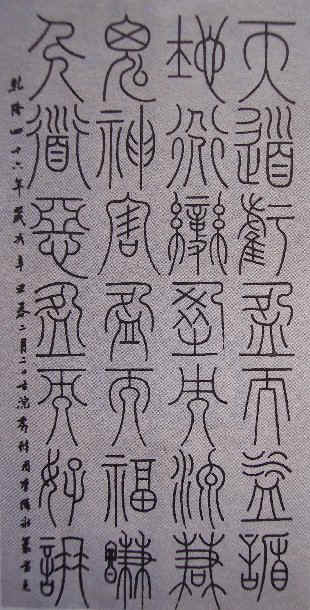 天道虧盈而益謙
地道變盈而流謙
鬼神害盈而福謙
人道惡盈而好謙
乾隆四十六年歲次辛丑春二月二日古浣